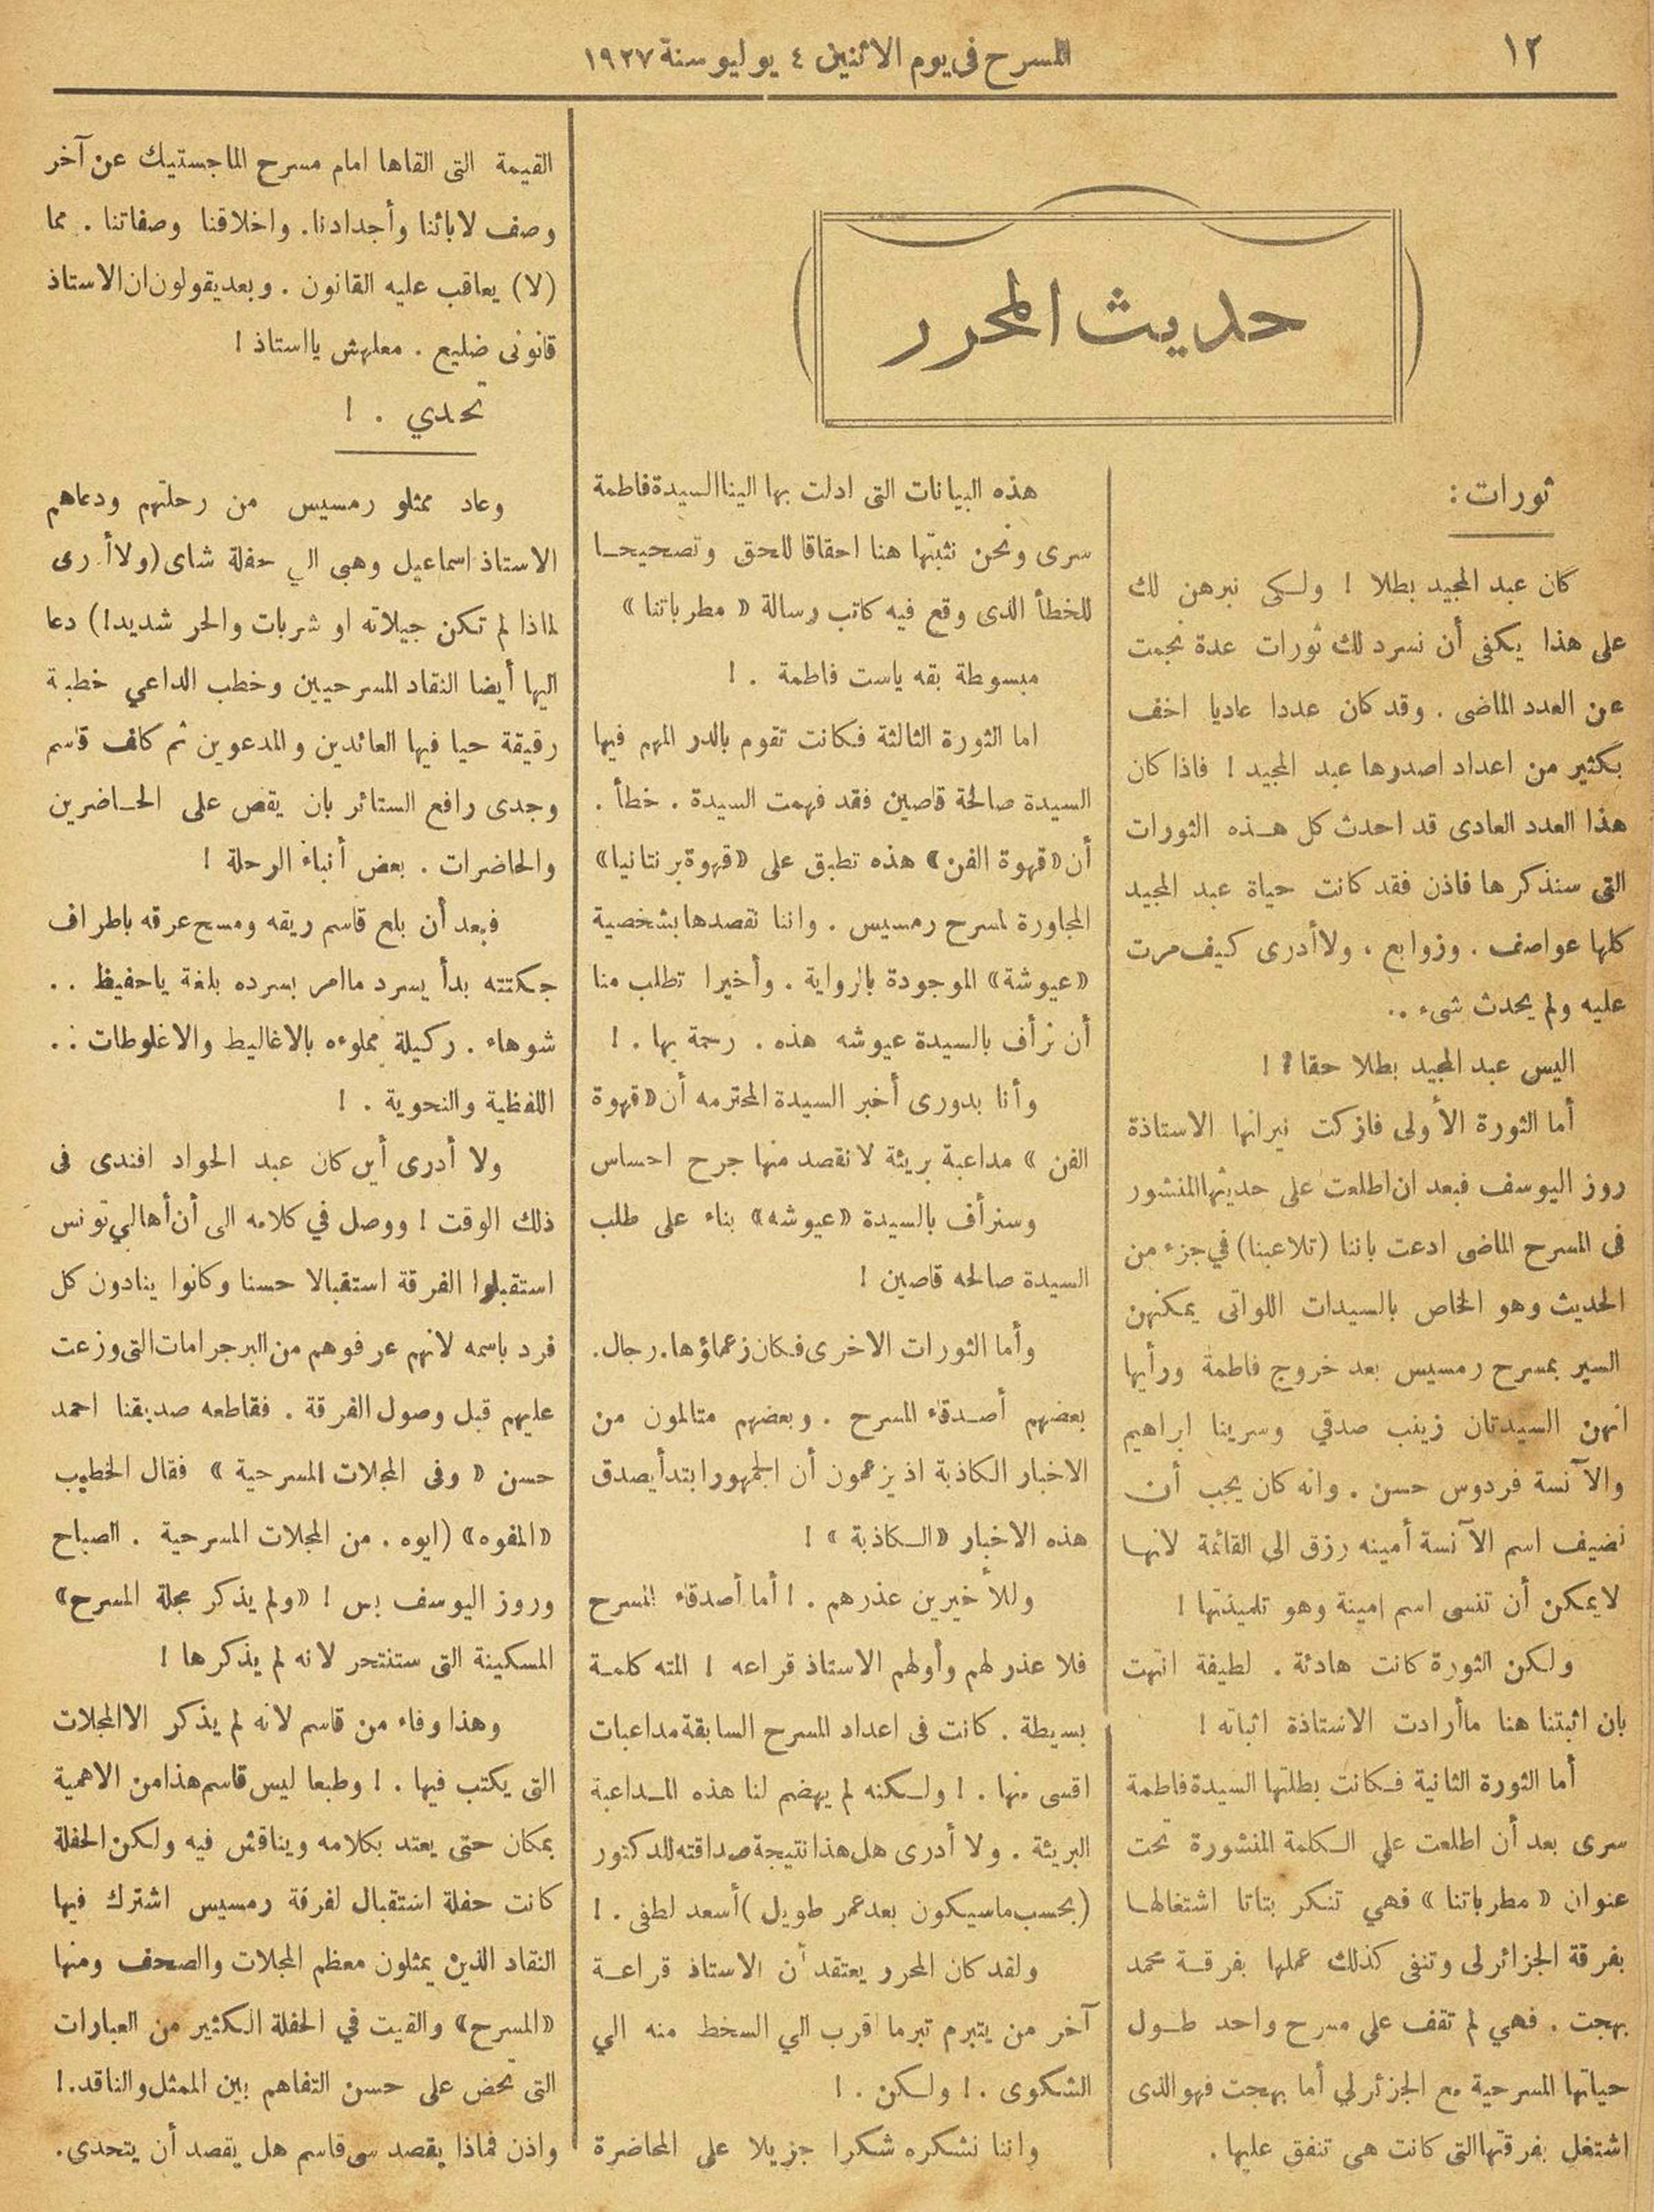 ١٢
المسرح فى يوم الاثنين ٤ يوليو سنة ١٩٢٧
حديث المحرر
ثورات :
كان عبد المجيد بطلا ! ولكى نبرهن لك
على هذا يكفى أن نسرد لك ثورات عدة نجمت
عن العدد الماضى . وقد كان عددا عاديا اخف
بكثير من اعداد اصدرها عبد المجيد ! فاذا كان
هذا العدد العادى قد احدث كل هذه الثورات
التى سنذكرها فاذن فقد كانت حياة عبد المجيد
كلها عواصف . وزوابع ، ولا أدرى كيف مرت
عليه ولم يحدث شىء ..
اليس عبد المجيد بطلا حقا ؟ !
أما الثورة الأولى فازكت نيرانها الاستاذة
روز اليوسف فبعد ان اطلعت على حديثها المنشور
فى المسرح الماضى ادعت باننا (تلاعبنا) في جزء من
الحديث وهو الخاص بالسيدات اللواتى يمكنهن
السير بمسرح رمسيس بعد خروج فاطمة ورأيها
انهن السيدتان زينب صدقي وسرينا ابراهيم
والآنسة فردوس حسن . وانه كان يجب أن
نضيف اسم الآنسة أمينه رزق الي القائمة لانها
لايمكن أن تنسى اسم امينة وهو تلميذتها !
ولكن الثورة كانت هادئة . لطيفة انتهت
بان اثبتنا هنا ماأرادت الاستاذة اثباته !
أما الثورة الثانية فكانت بطلتها السيدة فاطمة
سرى بعد أن اطلعت علي الكلمة المنشورة تحت
عنوان « مطرباتنا » فهي تنكر بتاتا اشتغالها
بفرقة الجزائرلى وتنفى كذلك عملها بفرقة محمد
بهجت . فهي لم تقف على مسرح واحد طول
حياتها المسرحية مع الجزئرلي أما بهجت فهو الذى
اشتغل بفرقتها التى كانت هى تنفق عليها .
هذه البيانات التى ادلت بها الينا السيدة فاطمة
سرى ونحن نثبتها هنا احقاقا للحق وتصحيحا
للخطأ الذى وقع فيه كاتب رسالة « مطرباتنا »
مبسوطة بقه ياست فاطمة . !
اما الثورة الثالثة فكانت تقوم بالدر المهم فيها
السيدة صالحة قاصين فقد فهمت السيدة . خطأ .
أن «قهوة الفن» هذه تطبق على «قهوة برنتانيا»
المجاورة لمسرح رمسيس . واننا نقصدها بشخصية
«عيوشة» الموجودة بالرواية . وأخيرا تطلب منا
أن نرأف بالسيدة عيوشه هذه . رحمة بها . !
وأنا بدورى أخبر السيدة المحترمه أن «قهوة
الفن » مداعبة بريئة لا نقصد منها جرح احساس
وسنرأف بالسيدة «عيوشه» بناء على طلب
السيدة صالحه قاصين !
وأما الثورات الاخرى فكان زعماؤها . رجال .
بعضهم أصدقاء المسرح . وبعضهم متالمون من
الاخبار الكاذبة اذ يزعمون أن الجمهور ابتدأ يصدق
هذه الاخبار «الكاذبة» !
وللأخيرين عذرهم . ! أما أصدقاء المسرح
فلا عذر لهم وأولهم الاستاذ قراعه ! المته كلمة
بسيطة . كانت فى اعداد المسرح السابقة مداعبات
اقسى منها . ! ولكنه لم يهضم لنا هذه المداعبة
البريئة . ولا أدرى هل هذا نتيجة صداقته للدكتور
(بحسب ماسيكون بعد عمر طويل) أسعد لطفى . !
ولقد كان المحرر يعتقد أن الاستاذ قراعة
آخر من يتبرم تبرما اقرب الي السخط منه الي
الشكوى . ! ولكن . !
واننا نشكره شكرا جزيلا على المحاضرة
القيمة التى القاها امام مسرح الماجستيك عن آخر
وصف لابائنا وأجدادنا . واخلاقنا وصفاتنا . مما
(لا) يعاقب عليه القانون . وبعد يقولون ان الاستاذ
قانونى ضليع . معلهش يااستاذ !
تحدي . !
وعاد ممثلو رمسيس من رحلتهم ودعاهم
الاستاذ اسماعيل وهبى الي حفلة شاى (ولا أدرى
لماذا لم تكن جيلاته او شربات والحر شديد !) دعا
اليها أيضا النقاد المسرحيين وخطب الداعي خطبة
رقيقة حيا فيها العائدين والمدعوين ثم كلف قاسم
وجدى رافع الستائر بان يقص على الحاضرين
والحاضرات . بعض أنباء الرحلة !
فبعد أن بلع قاسم ريقه ومسح عرقه باطراف
جكتته بدأ يسرد ماامر بسرده بلغة ياحفيظ ..
شوهاء . ركيلة مملوءه بالاغاليط والاغلوطات ..
اللفظية والنحوية . !
ولا أدرى أين كان عبد الجواد افندى فى
ذلك الوقت ! ووصل في كلامه الى أن أهالي تونس
استقبلوا الفرقة استقبالا حسنا وكانوا ينادون كل
فرد باسمه لانهم عرفوهم من البرجرامات التى وزعت
عليهم قبل وصول الفرقة . فقاطعه صديقنا احمد
حسن « وفى المجلات المسرحية » فقال الخطيب
«المفوه» (ايوه . من المجلات المسرحية . الصباح
وروز اليوسف بس ! «ولم يذكر مجلة المسرح»
المسكينة التى ستنتحر لانه لم يذكرها !
وهذا وفاء من قاسم لانه لم يذكر الا المجلات
التى يكتب فيها . ! وطبعا ليس قاسم هذا من الاهمية
بمكان حتى يعتد بكلامه ويناقش فيه ولكن الحفلة
كانت حفلة استقبال لفرقة رمسيس اشترك فيها
النقاد الذين يمثلون معظم المجلات والصحف ومنها
«المسرح» والقيت في الحفلة الكثير من العبارات
التى تحض على حسن التفاهم بين الممثل والناقد . !
واذن فماذا يقصد سى قاسم هل يقصد أن يتحدى .